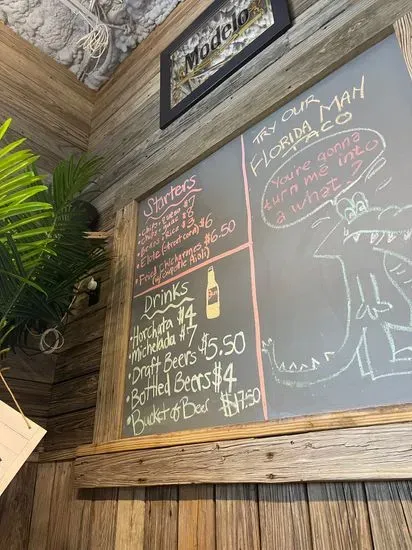 Modelo
Starters
• Chips & Queso $7
• Chips & Guac $8
• Beans & Rice $3
• Elote (street corn) $6
• Fried Chicharrones $6.50
(w/ Chipotle Aioli)
Drinks
• Horchata $4
• Michelada $7
• Draft Beers $5.50
• Bottled Beers $4
• Bucket of Beer $17.50
TRY OUR
FLORIDA MAN
TACO
You're gonna
turn me into
a what?